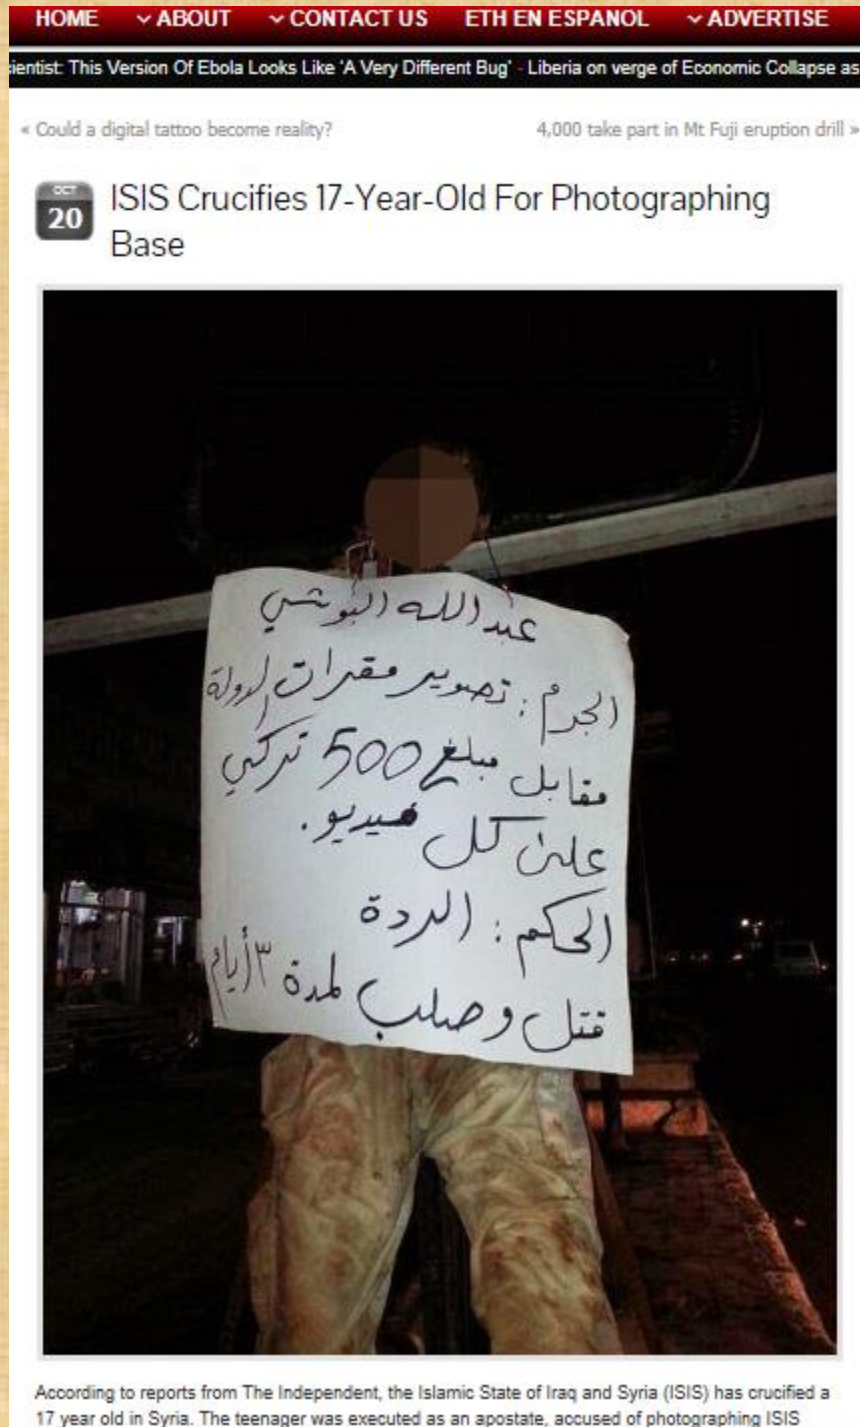 HOME ABOUT CONTACT US ETH EN ESPANOL ADVERTISE
ientist: This Version Of Ebola Looks Like 'A Very Different Bug' - Liberia on verge of Economic Collapse as
« Could a digital tattoo become reality? 4,000 take part in Mt Fuji eruption drill »
OCT
20
ISIS Crucifies 17-Year-Old For Photographing
Base
عبد الله البوشي
الجرم: تصوير مقرات الدولة
مقابل مبلغ 500 تركي
على كل فيديو.
الحكم: الردة
قتل وصلب لمدة ٣ أيام
According to reports from The Independent, the Islamic State of Iraq and Syria (ISIS) has crucified a
17 year old in Syria. The teenager was executed as an apostate, accused of photographing ISIS